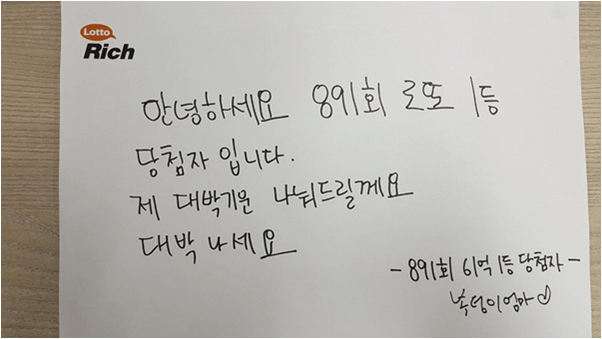 Lotto
Rich
안녕하세요 891회 로또 1등
당첨자 입니다.
제 대박기운 나눠드릴께요
대박 나세요
- 891회 61억 1등 당첨자 -
복덩이엄마♡